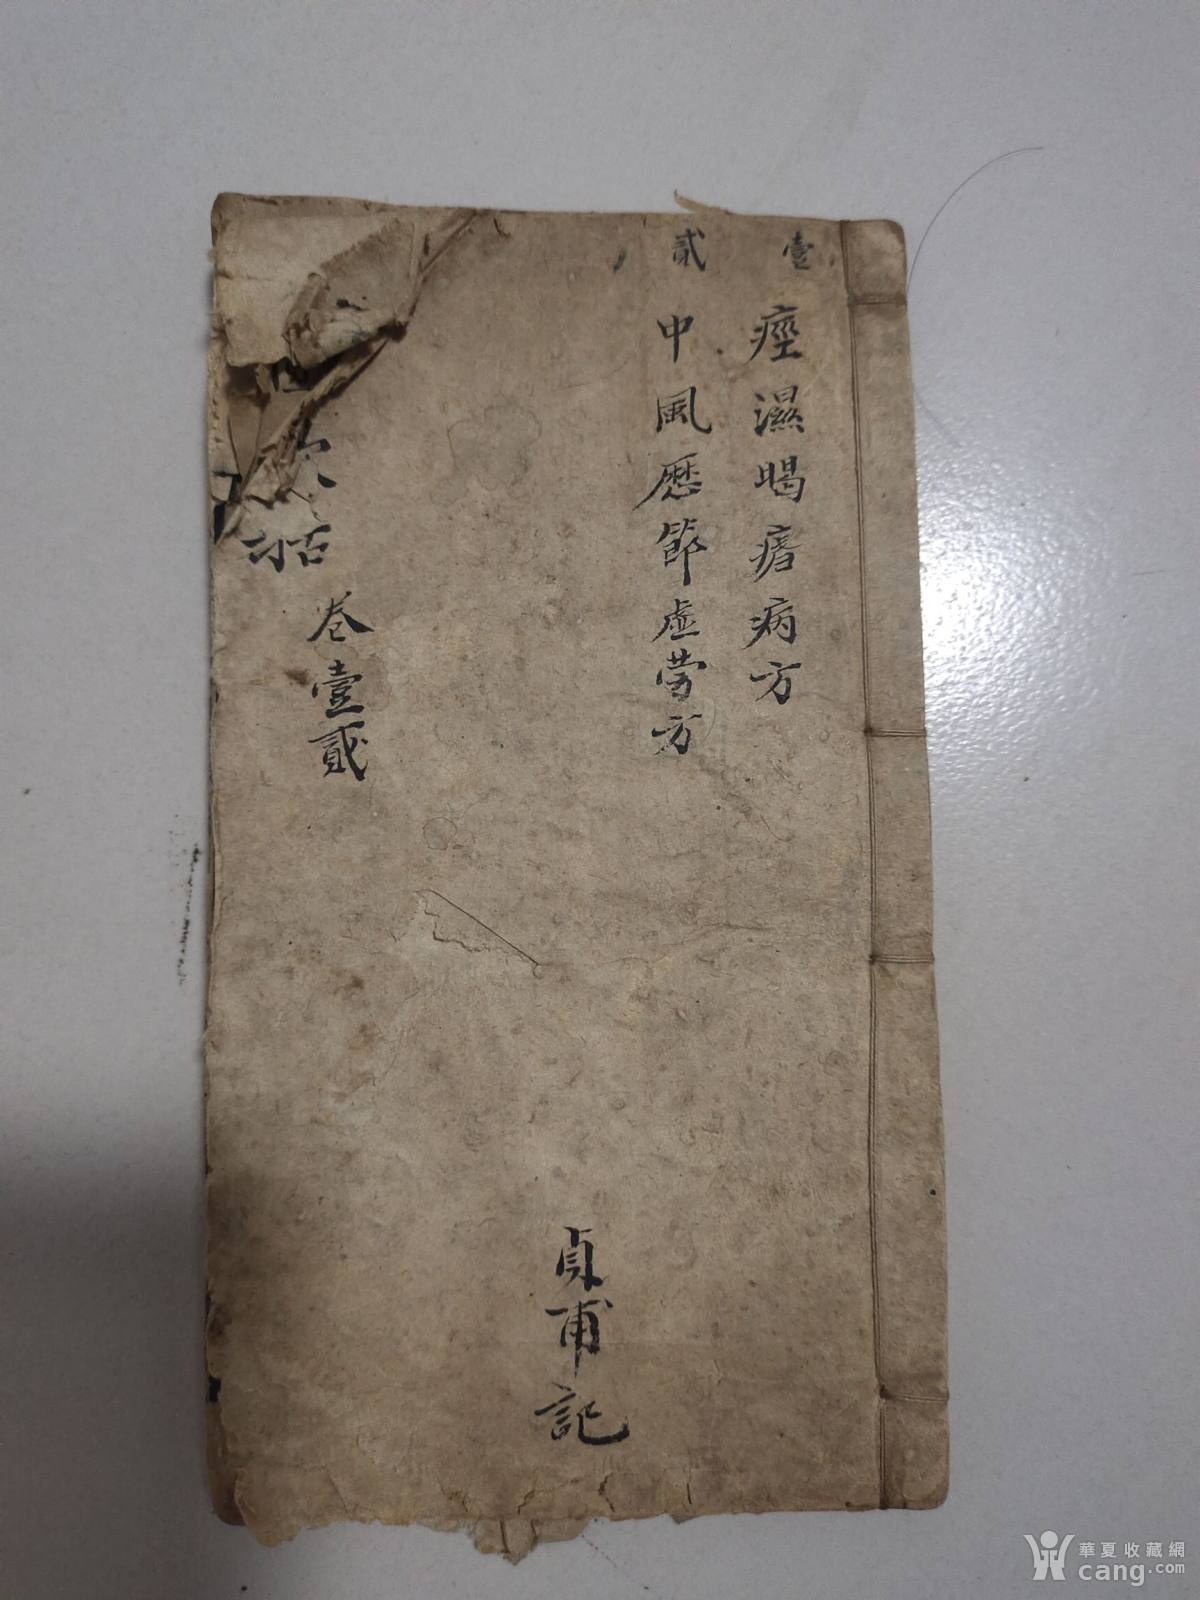 壹
痙濕暍瘧病方
貳
中風歷節虛劳方
歌括
卷壹貳
貞甫記
華夏收藏網
cang.com